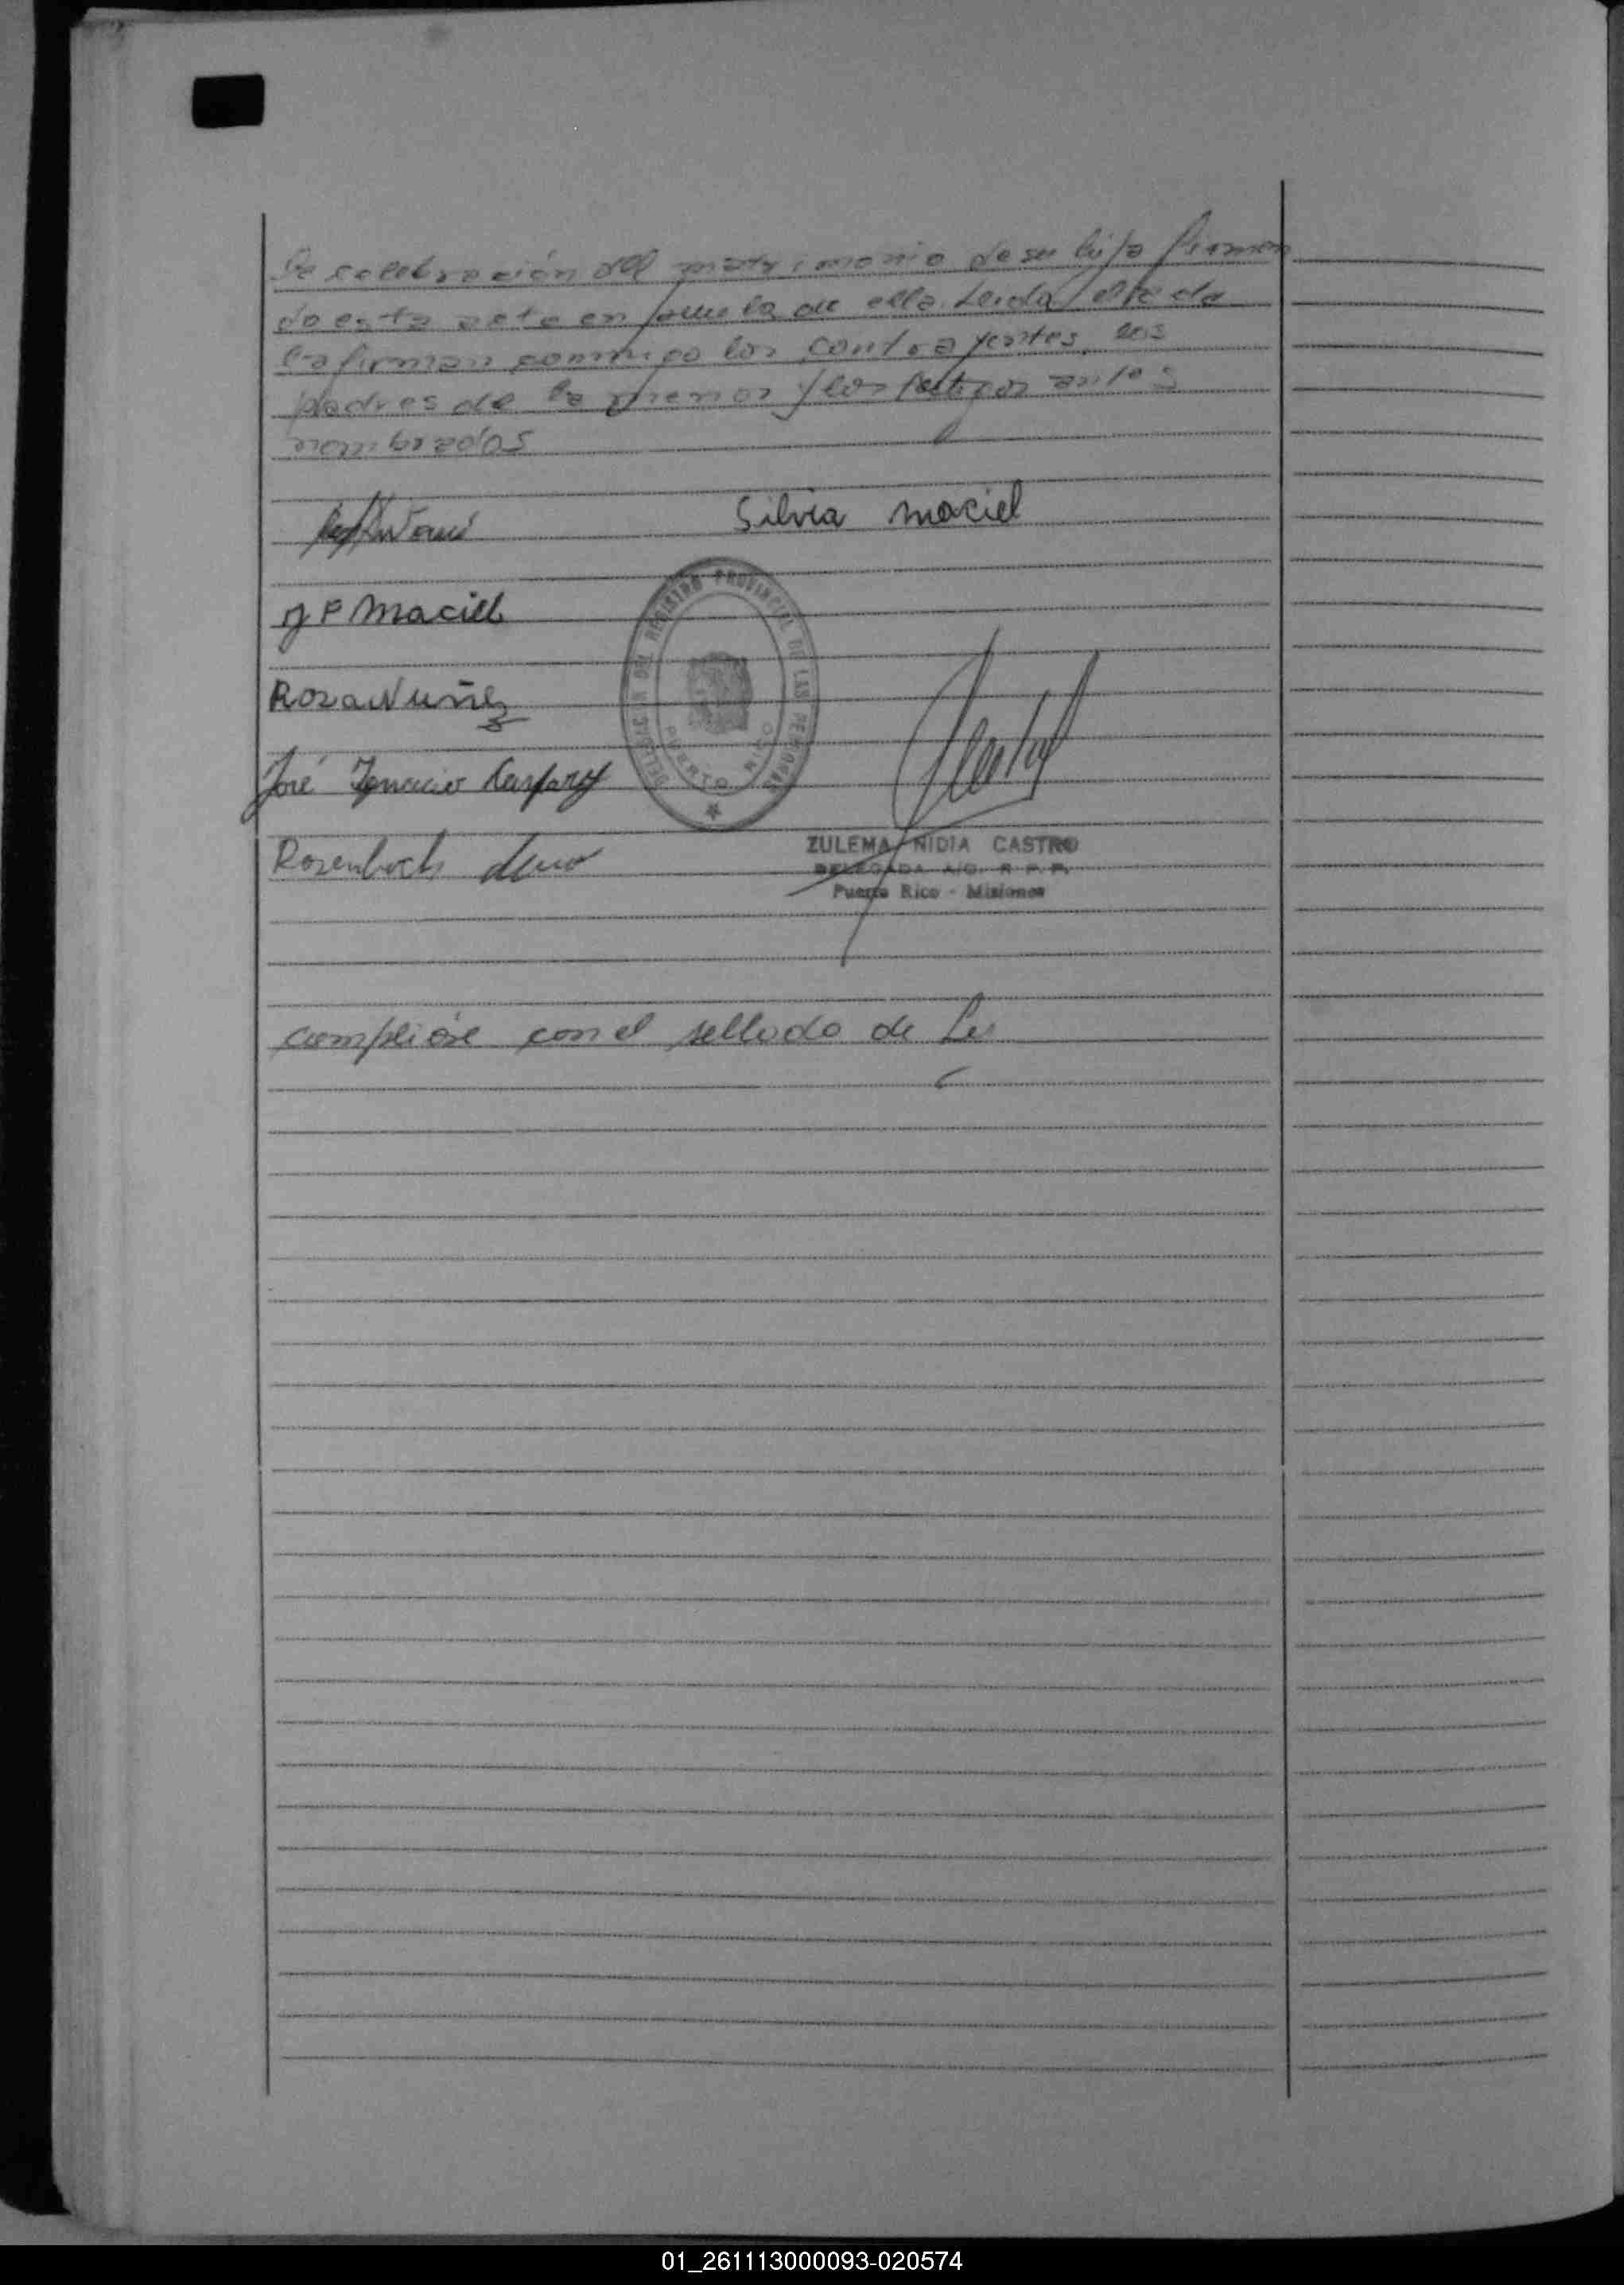 la celebración del matrimonio de su hija firman
do esta acta en prueba de ella. Leida el acta
la firman conmigo los contrayentes, los
padres de la menor y los testigos antes
nombrados
Silvia maciel
J P Maciel
Roza Nuñez
José Ignacio Kaspary
Rosenbach
DELEGACION DEL REGISTRO PROVINCIAL DE LAS PERSONAS
PUERTO RICO
ZULEMA NIDIA CASTRO
DELEGADA A/C. R. P. P.
Puerto Rico - Misiones
cumplióse con el sellado de Ley
01_261113000093-020574